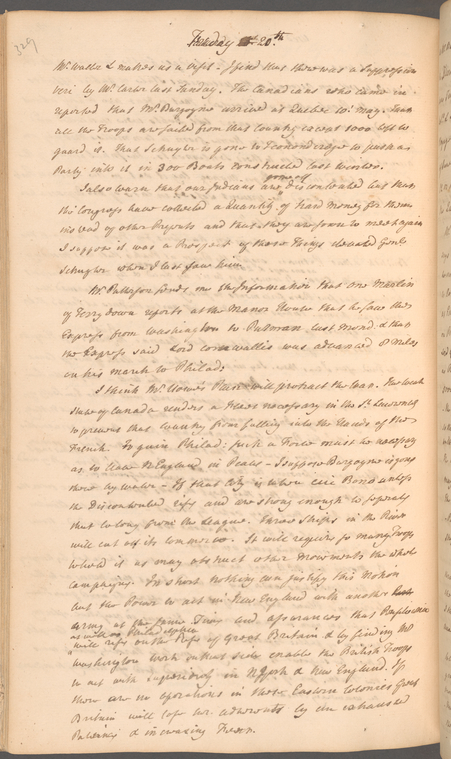 329
Tuesday 20.th
Mr. Waller makes us a Visit. I find that there was a Suppression
by Mr. Carter last Sunday. The Canadians who came in
reported that Mr. Burgoyne arrived at Quebec in May. That
all the Troops are sailed from that Country except 1000 left to
guard it. That Schuyler is gone to Ticonderoga to push a
Party into it in 300 Boats constructed last Winter.
I also learn that our Indians are discontented but that
the Congress have collected a Quantity of hard Money for them
instead of other Presents and that they are soon to meet again
I suppose it was a Prospect of these Things elevated Genl
Schuyler when I last saw him
Mr. Patterson sends me the Information that one Martin
of Terry down reports at the Manor House that he saw the
Express from Washington to Putnam last Mond. & that
the Express said Lord Cornwallis was advanced 8 Miles
on his march to Philad:
I think Mr. Howes Plan will protract the War. The weak
State of Canada renders a necessary in the St. Lawrence
to prevent that Country from falling into the Hands of the
French. To gain Philad: such a Force must be necessary
as to leave N England in Peace - I suppose Burgoyne is gone
there by water - If that City is taken Cui Bono unless
the Discontented rise and are strong enough to separate
that Colony from the League. Three Ships in the River
will cut off its Commerce. It will require so many Troops
to hold it as may obstruct other Movements the whole
Campaign. In short nothing can justify this Motion
but the Power to act in New England with another
Army at the same Time and assurances that Pensilvania
as well as Philadelphia
will rise on the Side of Great Britain & by finding Mr
Washington Work on that side enable the British Troops
to act with superiority in N York & New England. If
there are no operations in these Eastern Colonies Great
Britain will lose her adherents by an exhausted
Patience & increasing Terror.